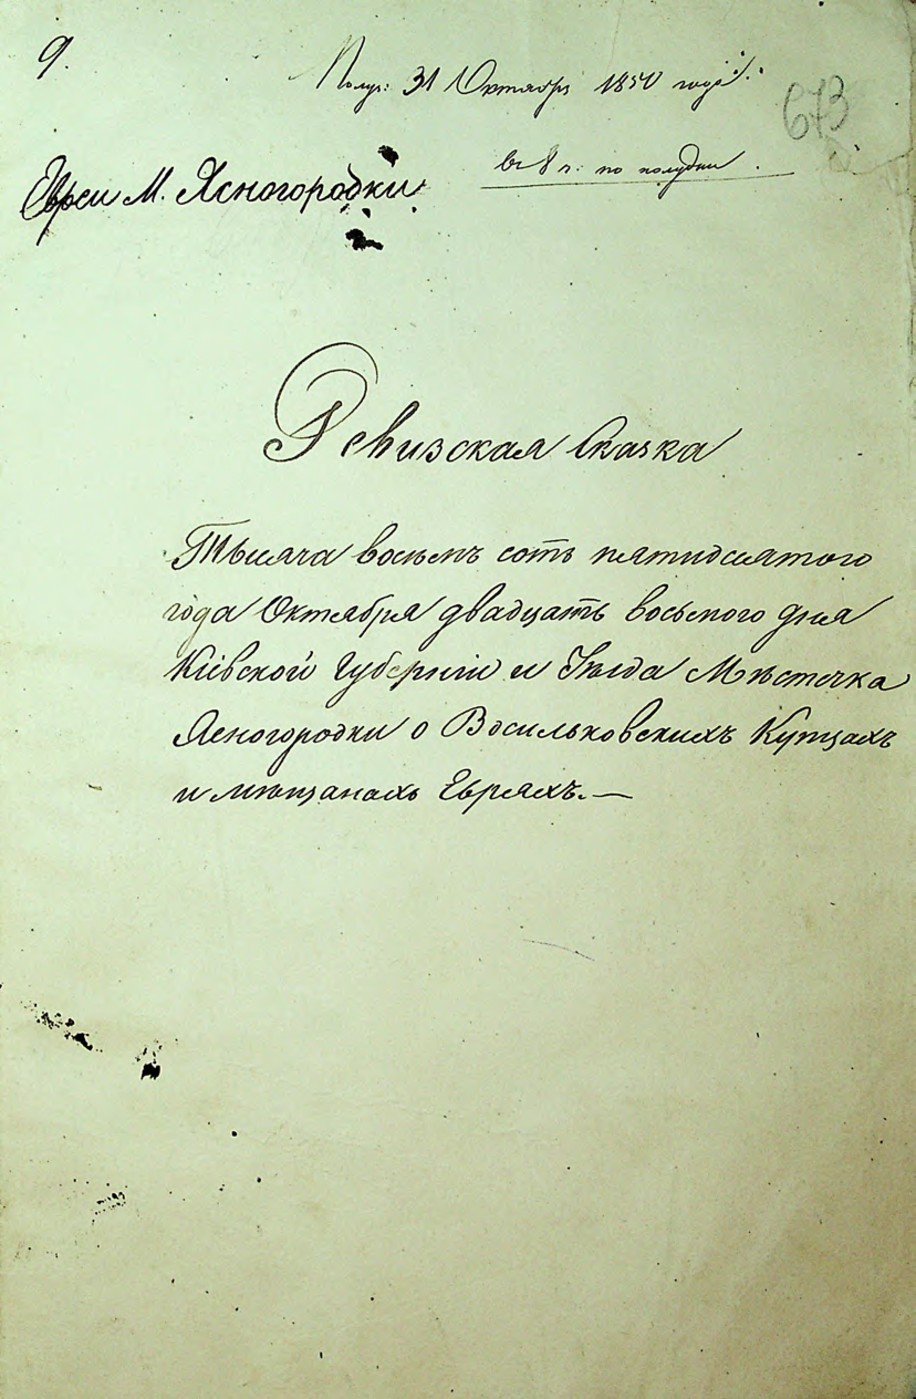 9.
Получ: 31 Октября 1850 года.
673
Евреи М. Ясногородки
в 8 ч: по полудни.
Ревизская Сказка
Тысяча восемъ сотъ пятидесятого
года Октября двадцать восьмого дня
Кіевской Губерніи и Уезда Мѣстечка
Ясногородки о Васильковскихъ Купцахъ
и мѣщанахъ Евреяхъ.—